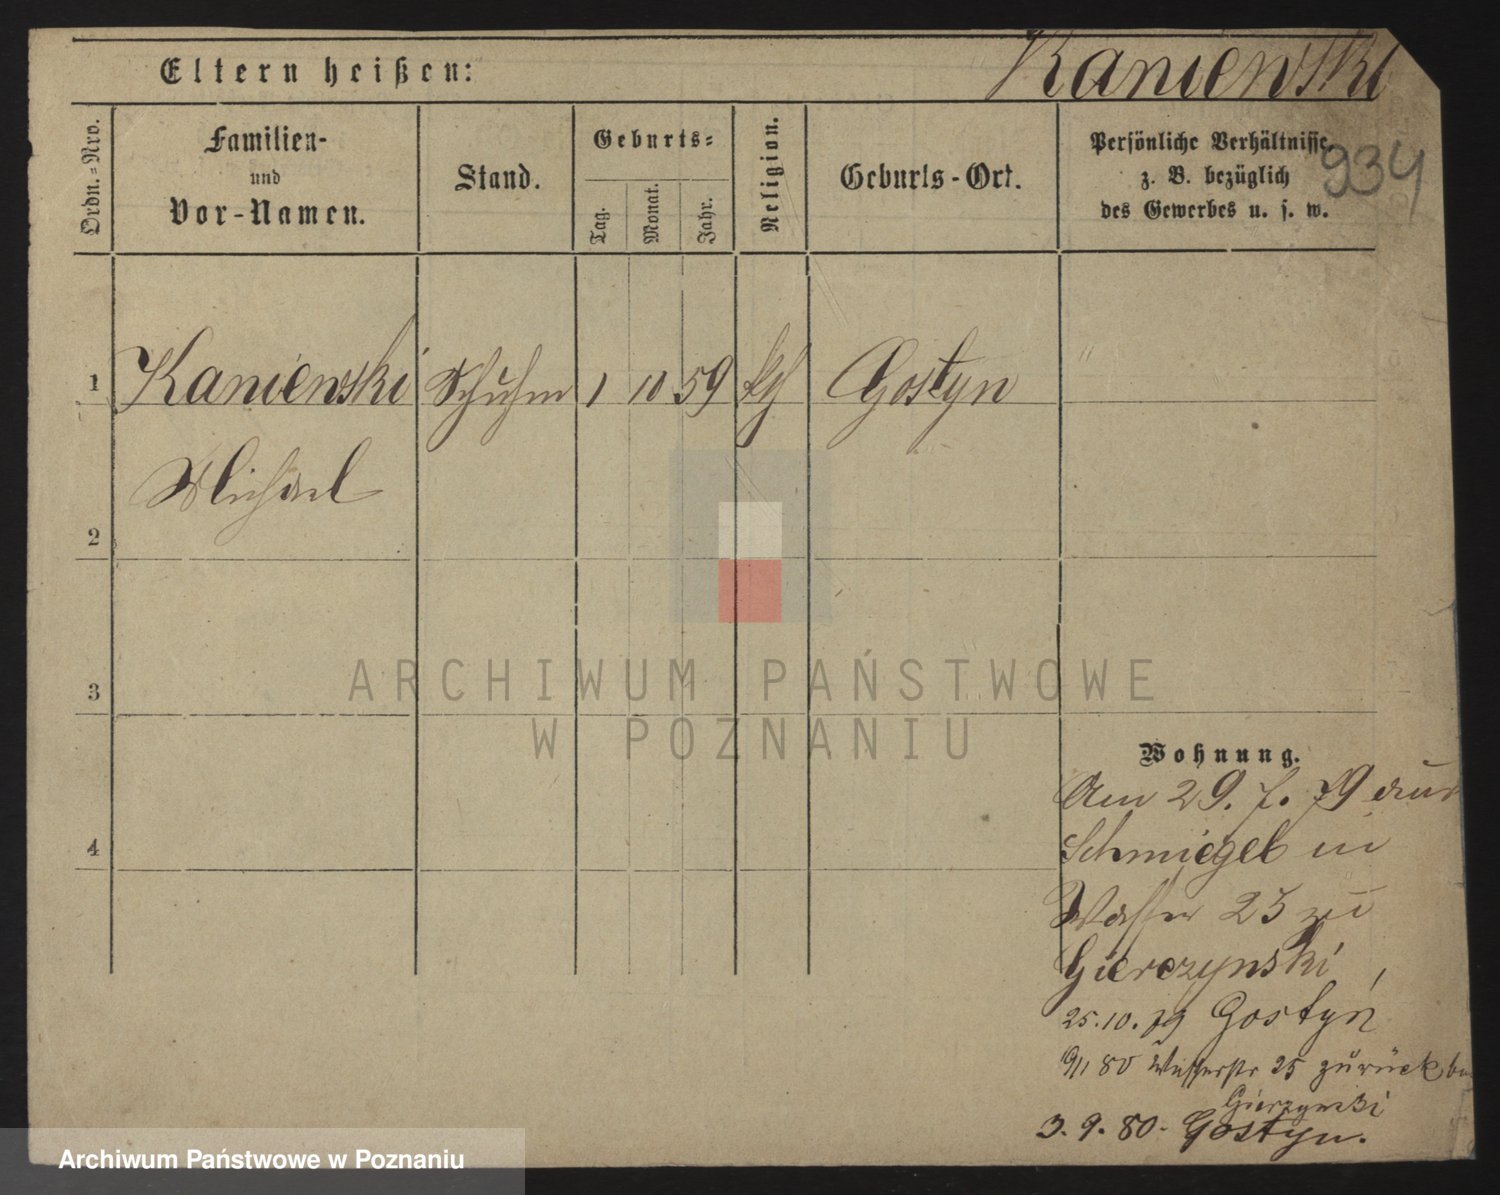 Eltern heißen:
Kaniewski
934
Ordn.-Nro.
Familien-
und
Vor-Namen.
Stand.
Geburts-
Tag.
Monat.
Jahr.
Religion.
Geburts-Ort.
Persönliche Verhältnisse
z. B. bezüglich
des Gewerbes u. s. w.
1 Kaniewski Schuhm 1 10 59 kth Gostyn
Michael
2
3
4
Wohnung.
Am 29. 7. 79 aus
Schmiegel in
Wasser 25 zu
Gierczynski
25.10.79 Gostyń
80 Wasserstr 25 zurück
Gierczynski
3. 9. 80. Gostyn.
ARCHIWUM PAŃSTWOWE
W POZNANIU
Archiwum Państwowe w Poznaniu